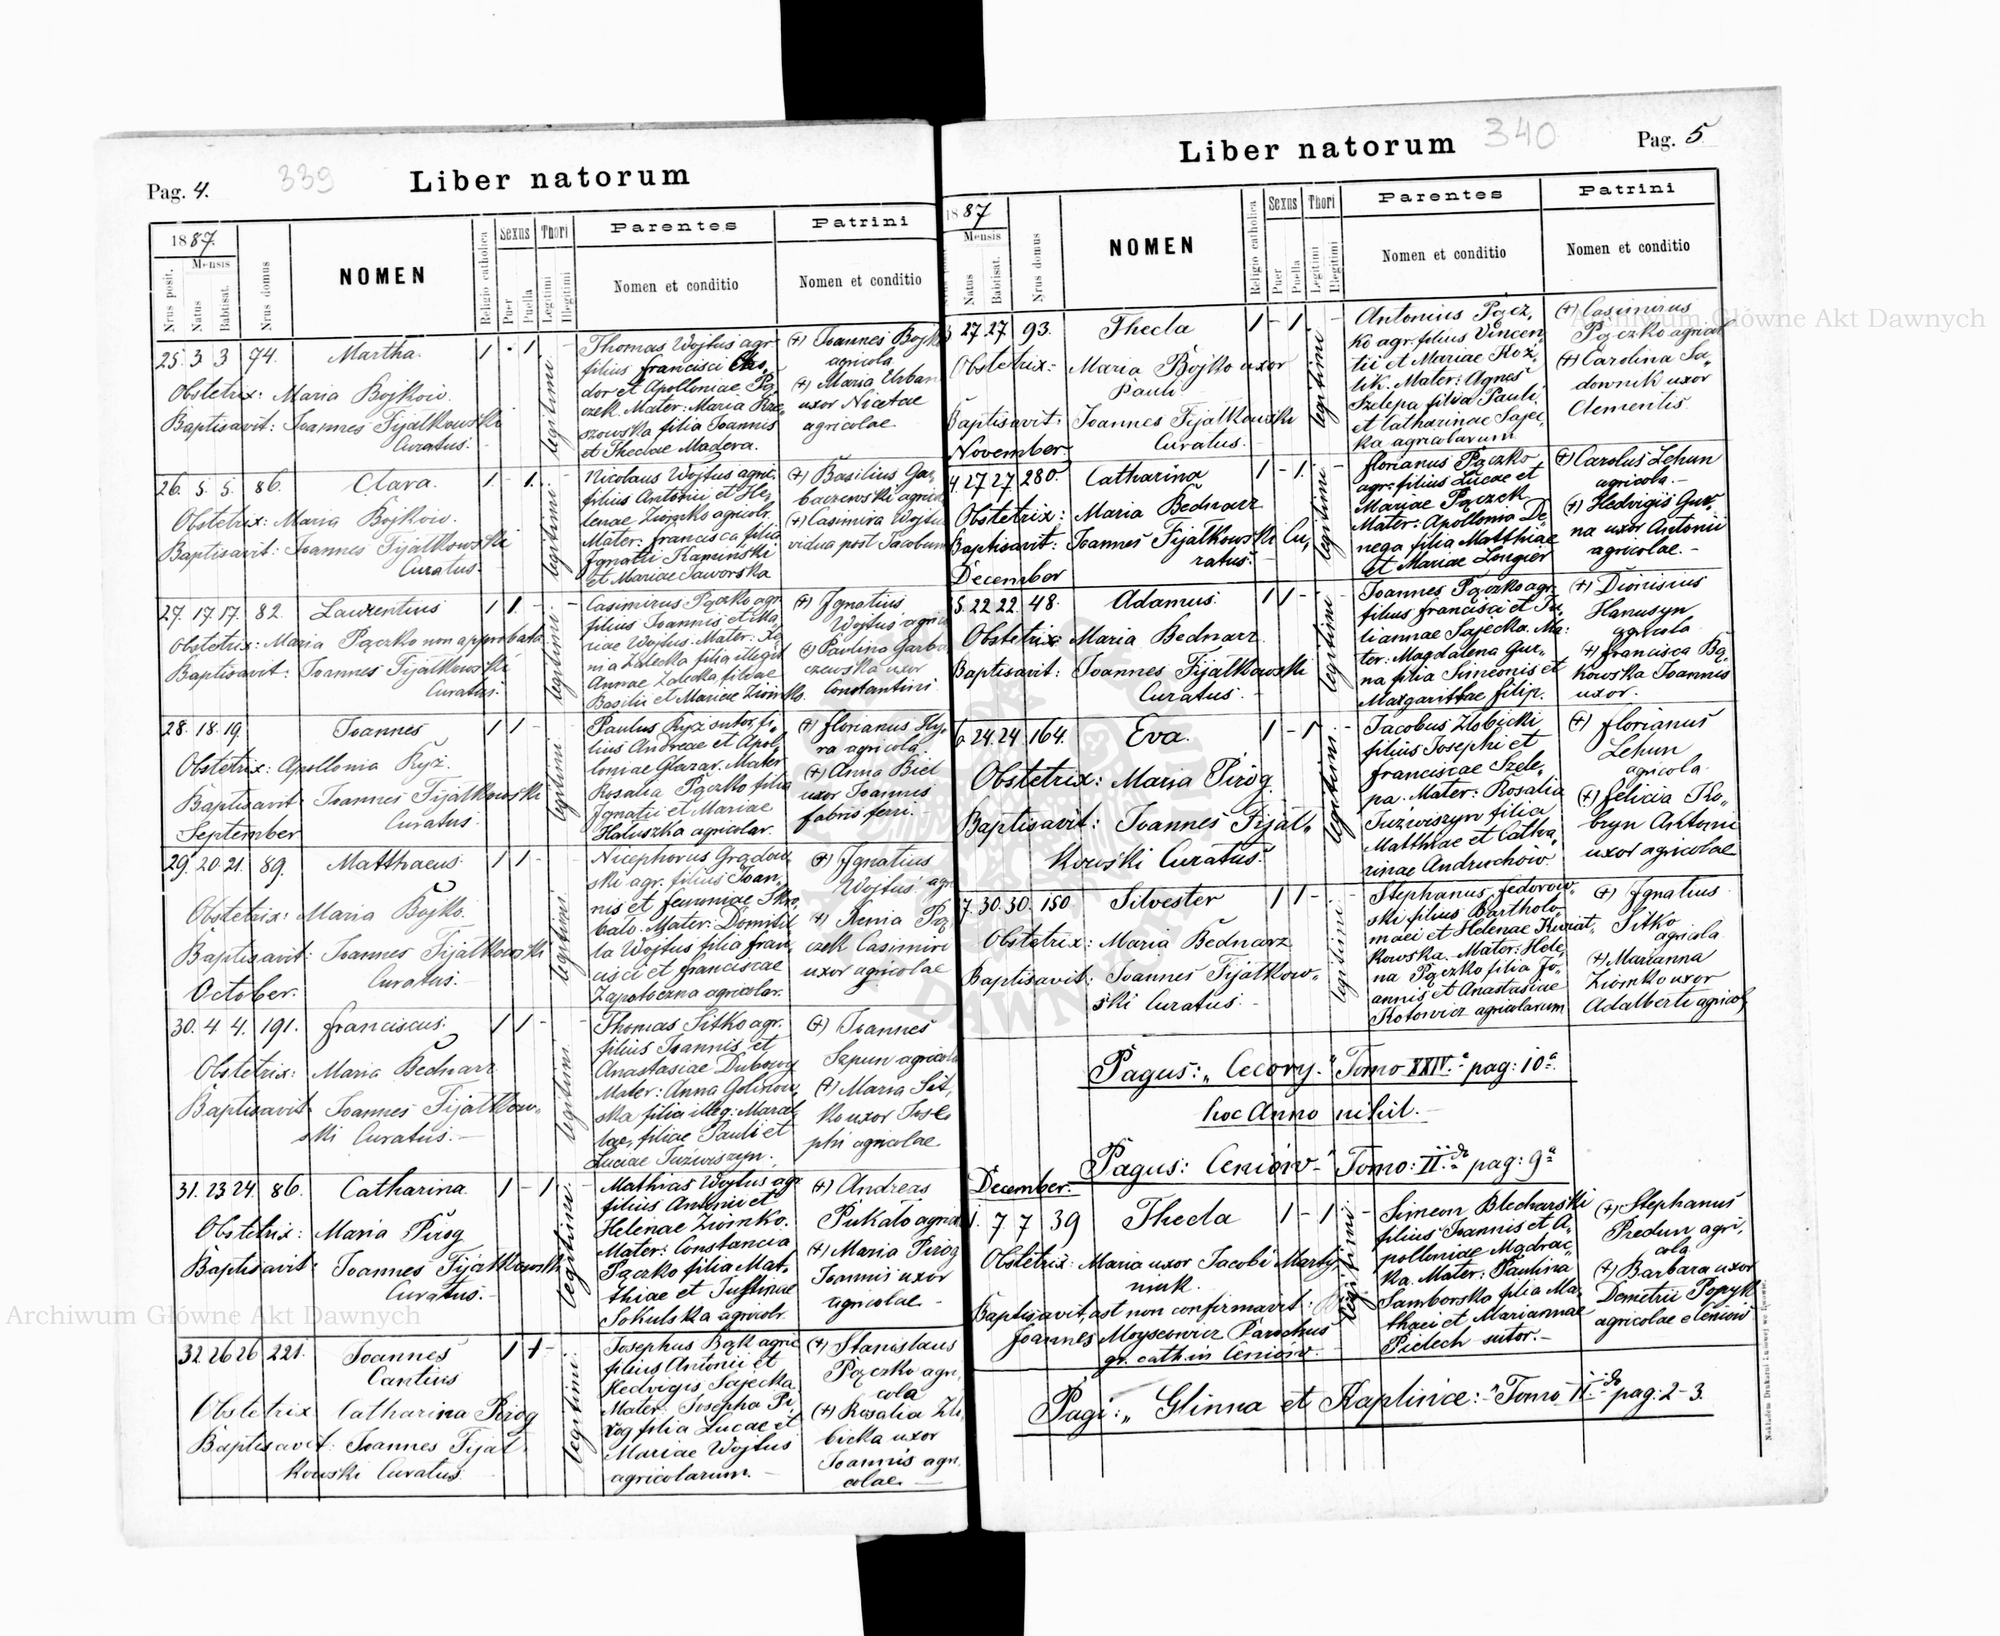 Pag. 4.
339
Liber natorum
1887.
Mensis
Nrus posit.
Natus
Babtisat.
Nrus domus
NOMEN
Religio catholica
Sexus
Puer
Puella
Thori
Legitimi
Illegitimi
Parentes
Nomen et conditio
Patrini
Nomen et conditio
25. 3 3 74. Martha. 1 - 1 legitimi
Obstetrix: Maria Bojkow.
Baptisavit: Joannes Fijałkowski
Curatus.
Thomas Wojtus agr.
filius Francisci
dor et Apolloniae Pą
czek. Mater: Maria Rze
szowska filia Joannis
et Theclae Madera.
(+) Joannes Bojk
agricola
(+) Maria Urban
uxor Nicetae
agricolae
26. 5. 5. 86. Clara. 1 - 1. legitimi
Obstetrix: Maria Bojkow.
Baptisavit: Joannes Fijałkowski
Curatus.
Nicolaus Wojtus agric.
filius Antonii et He,
lenae Ziomko agricolr.
Mater: Francisca filia
Ignatii Kamiński
et Mariae Jaworska
(+) Basilius Gar
baczewski agrico
(+) Casimira Wojtu
vidua post Jacobum
27. 17. 17. 82. Laurentius 1 1. - legitimi
Obstetrix: Maria Pączko non approbata
Baptisavit: Joannes Fijałkowski
Curatus.
Casimirus Pączko agr.
filius Joannis et Ma,
riae Wojtus. Mater: Xe
nia Załecka filia illegit
Annae Załecka filiae
Basilii et Mariae Ziomko.
(+) Ignatius
Wojtus agrico
(+) Paulina Garba
czewska uxor
Constantini
28. 18. 19. Joannes 1 1 - legitimi
Obstetrix: Apollonia Ryż.
Baptisavit Joannes Fijałkowski
Curatus.
September
Paulus Ryż sutor, fi,
lius Andreae et Apol,
loniae Glazar. Mater
Rosalia Pączko filia
Ignatii et Mariae
Hałuszka agricolar.
(+) Florianus Hy,
ra agricola.
(+) Anna Bied
uxor Joannis
fabris ferri.
29. 20. 21. 89. Matthaeus 1 1 - legitimi
Obstetrix: Maria Bojko.
Baptisavit: Joannes Fijałkowski
Curatus.
October.
Nicephorus Grądow
ski agr. filius Joan,
nis et Femroniae Skro,
balo. Mater: Domitil
la Wojtus filia Fran,
cisci et Franciscae
Zapotoczna agricolar.
(+) Ignatius
Wojtus agr
(+) Xenia Pą
czek Casimiri
uxor agricolae
30. 4 4. 191. Franciscus. 1 1 - legitimi
Obstetrix: Maria Bednarz
Baptisavit Joannes Fijałkow-
ski Curatus.
Thomas Sitko agr.
filius Joannis et
Anastasiae Dubowy
Mater: Anna Golinow,
ska filia illeg: Marcel
lae, filiae Pauli et
Luciae Juzwiszyn.
(+) Joannes
Szpun agricola
(+) Maria Sit,
ko uxor Jose
phi agricolae
31. 23 24. 86. Catharina 1 - 1 - legitimi
Obstetrix: Maria Pirog
Baptisavit Joannes Fijałkowski
Curatus.
Mathias Wojtus agr
filius Antonii et
Helenae Ziomko.
Mater: Constancia
Pączko filia Mat,
thiae et Justinae
Sokulska agricolr.
(+) Andreas
Pukało agrico
(+) Maria Pirog
Joannis uxor
agricolae -
32. 26 26 221. Joannes 1 1 - legitimi
Cantius
Obstetrix Catharina Pirog
Baptisavit: Joannes Fijał
kowski Curatus
Josephus Bąk agric
filius Antonii et
Hedvigis Sajecka
Mater: Josepha Pi,
rog filia Lucae et
Mariae Wojtus
agricolarum. -
(+) Stanislaus
Pączko agri,
cola
(+) Rosalia Zło
bicka uxor
Joannis agri
colae. -
Liber natorum
340
Pag. 5
1887
Mensis
Natus
Babtisat.
Nrus domus
NOMEN
Religio catholica
Sexus
Puer
Puella
Thori
Legitimi
Illegitimi
Parentes
Nomen et conditio
Patrini
Nomen et conditio
3 27 27 93. Thecla 1 - 1 legitimi
Obstetrix: Maria Bojko uxor
Pauli
Baptisavit: Joannes Fijałkowski
Curatus.
November
Antonius Pącz,
ko agr. filius Vincen
tii et Mariae Koź,
lik. Mater: Agnes
Szelepa filia Pauli
et Catharinae Sajec,
ka agricolarum
(+) Casimirus
Pączko agricol
(+) Carolina Sa,
downik uxor
Clementis.
4. 27 27 280. Catharina 1 - 1. legitimi
Obstetrix: Maria Bednarz
Baptisavit: Joannes Fijałkowski Cu,
ratus.
December
Florianus Pączko
agr. filius Lucae et
Mariae Pączek
Mater: Apollonia De,
nega filia Matthiae
et Mariae Longier
(+) Carolus Lehun
agricola. -
(+) Hedvigis Gur,
na uxor Antonii
agricolae. -
5. 22 22. 48. Adamus. 1 1 - legitimi
Obstetrix Maria Bednarz
Baptisavit: Joannes Fijałkowski
Curatus.
Joannes Pączko agr.
filius Francisci et Ju,
liannae Sajecka. Ma:
ter: Magdalena Gur,
na filia Simeonis et
Margarithae Filip.
(+) Dionisius
Hanusyn
agricola
(+) Francisca Bą,
kowska Joannis
uxor.
6. 24. 24. 164. Eva. 1 - 1 - legitimi
Obstetrix: Maria Pirog
Baptisavit: Joannes Fijał,
kowski Curatus.
Jacobus Złobicki
filius Josephi et
Franciscae Szele,
pa. Mater: Rosalia
Juzwiszyn filia
Matthiae et Catha,
rinae Andruchow
(+) Florianus
Lehun
agricola.
(+) Felicia Ko,
bryn Antoni
uxor agricolae
7. 30. 30. 150 Silvester 1 1 - legitimi
Obstetrix: Maria Bednarz
Baptisavit: Joannes Fijałkow,
ski Curatus. -
Stephanus Fedorow,
ski filius Bartholo,
maei et Helenae Kwiat,
kowska. Mater: Hele,
na Pączko filia Jo,
annis et Anastasiae
Kotowicz agricolarum
(+) Ignatius
Sitko
agricola
(+) Marianna
Ziomko uxor
Adalberti agricol
Pagus: „Cecory." Tomo XXIV.ª pag: 10ª.
hoc Anno nihil. -
Pagus: Ceniów - " Tomo: II.do pag: 9ª
December.
1. 7 7 39 Thecla 1 - 1 - legitimi
Obstetrix: Maria uxor Jacobi Marty,
niuk.
Baptisavit, ast non confirmavit:
Joannes Moyseowicz Parochus
gr. cath. in Ceniów. -
Simeon Blecharski
filius Joannis et A,
polloniae Mądrac,
ka. Mater: Paulina
Samborska filia Ma,
thaei et Mariannae
Pielech sutor. -
(+) Stephanus
Predun agri,
cola
(+) Barbara uxor
Demetrii Popyk
agricolae e Ceniów
Pagi: „Glinna et Kaplince: " Tomo II.do pag: 2-3.
Archiwum Główne Akt Dawnych
Archiwum Główne Akt Dawnych